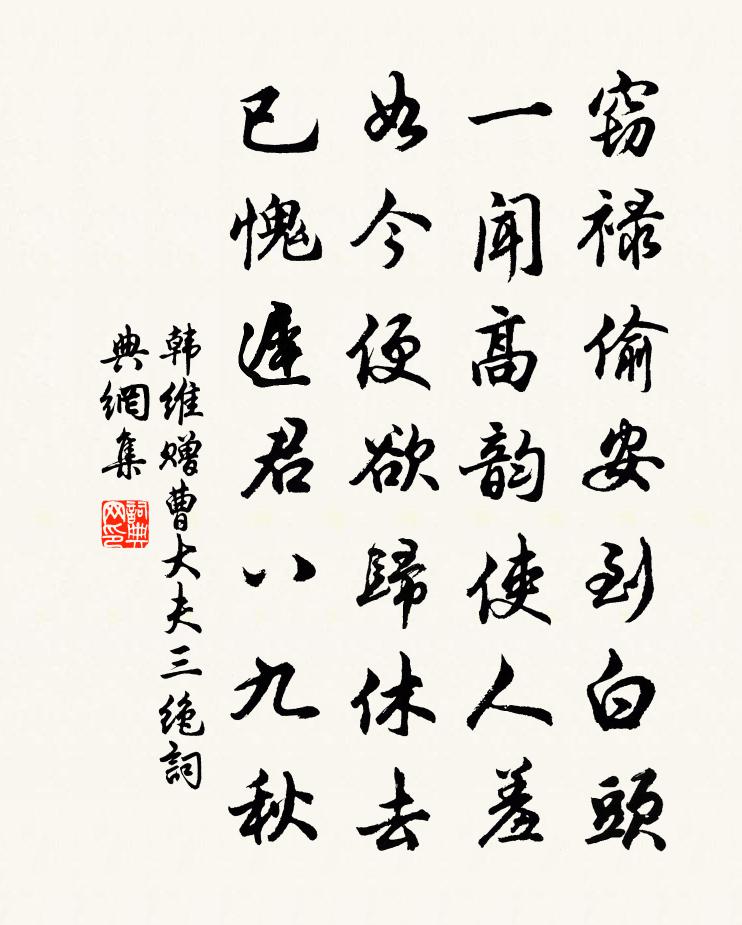 窃禄偷安到白頭
一闻高韵使人羞
如今便欲歸休去
已愧遲君八九秋
韩维赠曹大夫三绝詞
典網集
詞典
网印